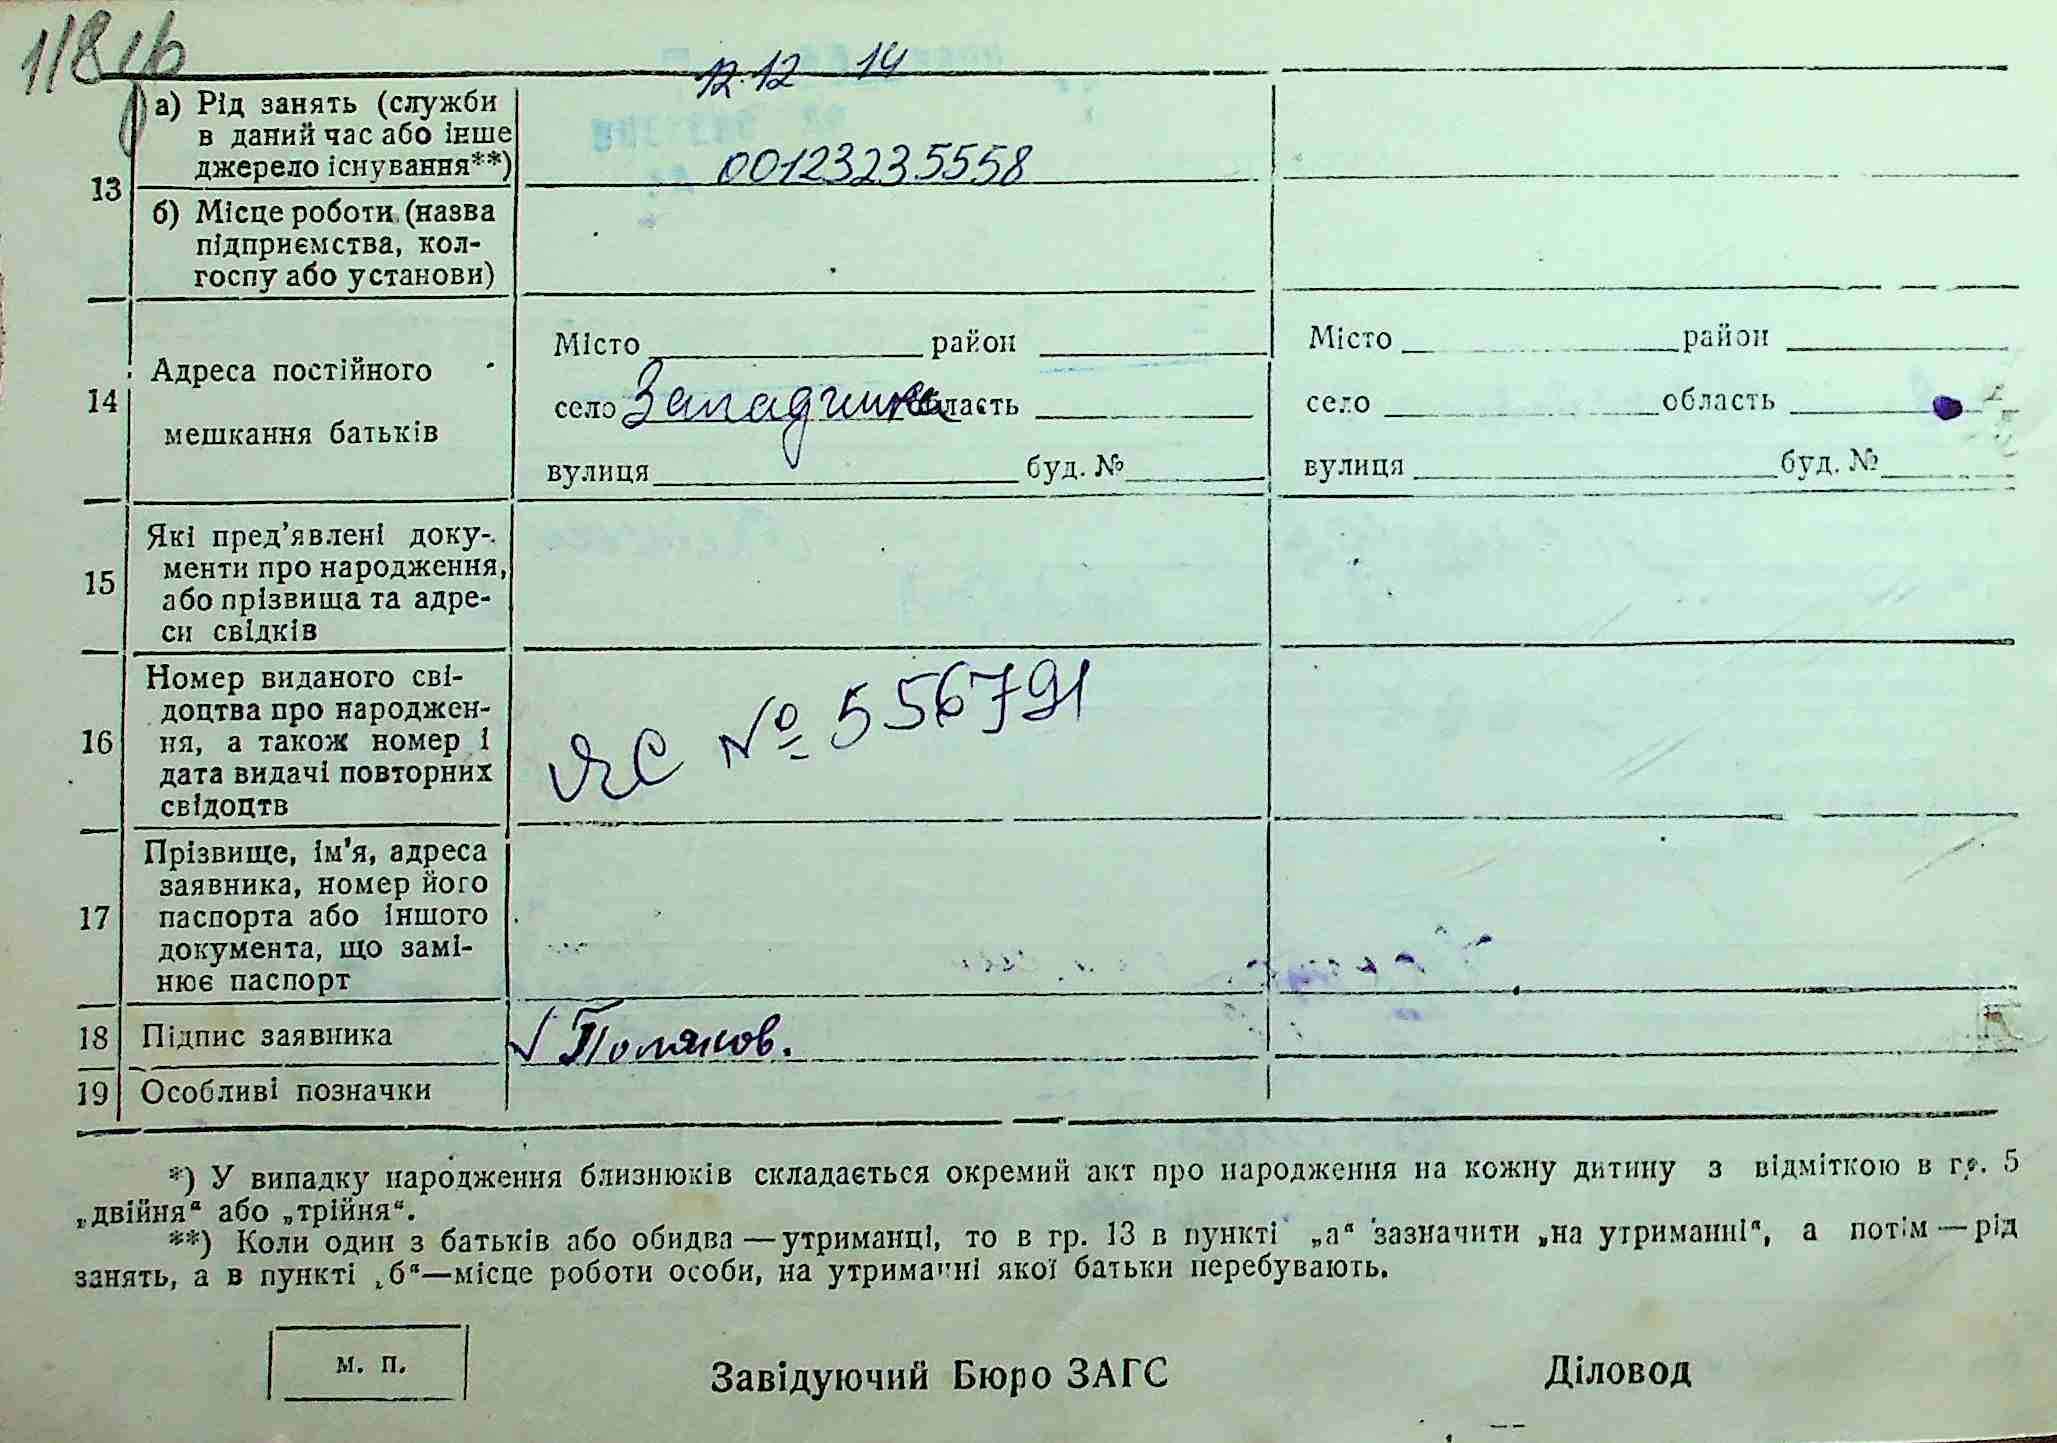 118 ів
12.12 14
13
а) Рід занять (служби
в даний час або інше
джерело існування**)
00123235558
б) Місце роботи (назва
підприємства, кол-
госпу або установи)
14
Адреса постійного
мешкання батьків
Місто район
село Западинка область
вулиця буд. №
Місто район
село область
вулиця буд. №
15
Які пред’явлені доку-
менти про народження,
або прізвища та адре-
си свідків
16
Номер виданого сві-
доцтва про народжен-
ня, а також номер і
дата видачі повторних
свідоцтв
ЯС № 556791
17
Прізвище, ім’я, адреса
заявника, номер його
паспорта або іншого
документа, що замі-
нює паспорт
18
Підпис заявника
Поляков.
19
Особливі позначки
*) У випадку народження близнюків складається окремий акт про народження на кожну дитину з відміткою в гр. 5
„двійня“ або „трійня“.
**) Коли один з батьків або обидва — утриманці, то в гр. 13 в пункті „а“ зазначити „на утриманні“, а потім — рід
занять, а в пункті „б“—місце роботи особи, на утриманні якої батьки перебувають.
м. п.
Завідуючий Бюро ЗАГС
Діловод